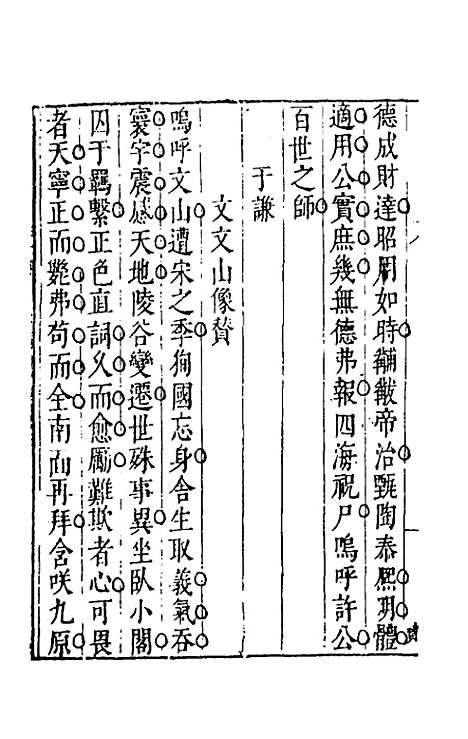 德成財達昭用如時黼黻帝治甄陶泰熈明體
適用公實庶幾無德弗報四海祝尸嗚呼許公
百世之師
于謙
文文山像賛
嗚呼文山遭宋之季狥國忘身舎生取義氣吞
寰宇震感天地陵谷變遷世殊事異坐臥小閣
囚于羈繫正色直詞久而愈勵難欺者心可畏
者天寧正而斃弗苟而全南面再拜含咲九原